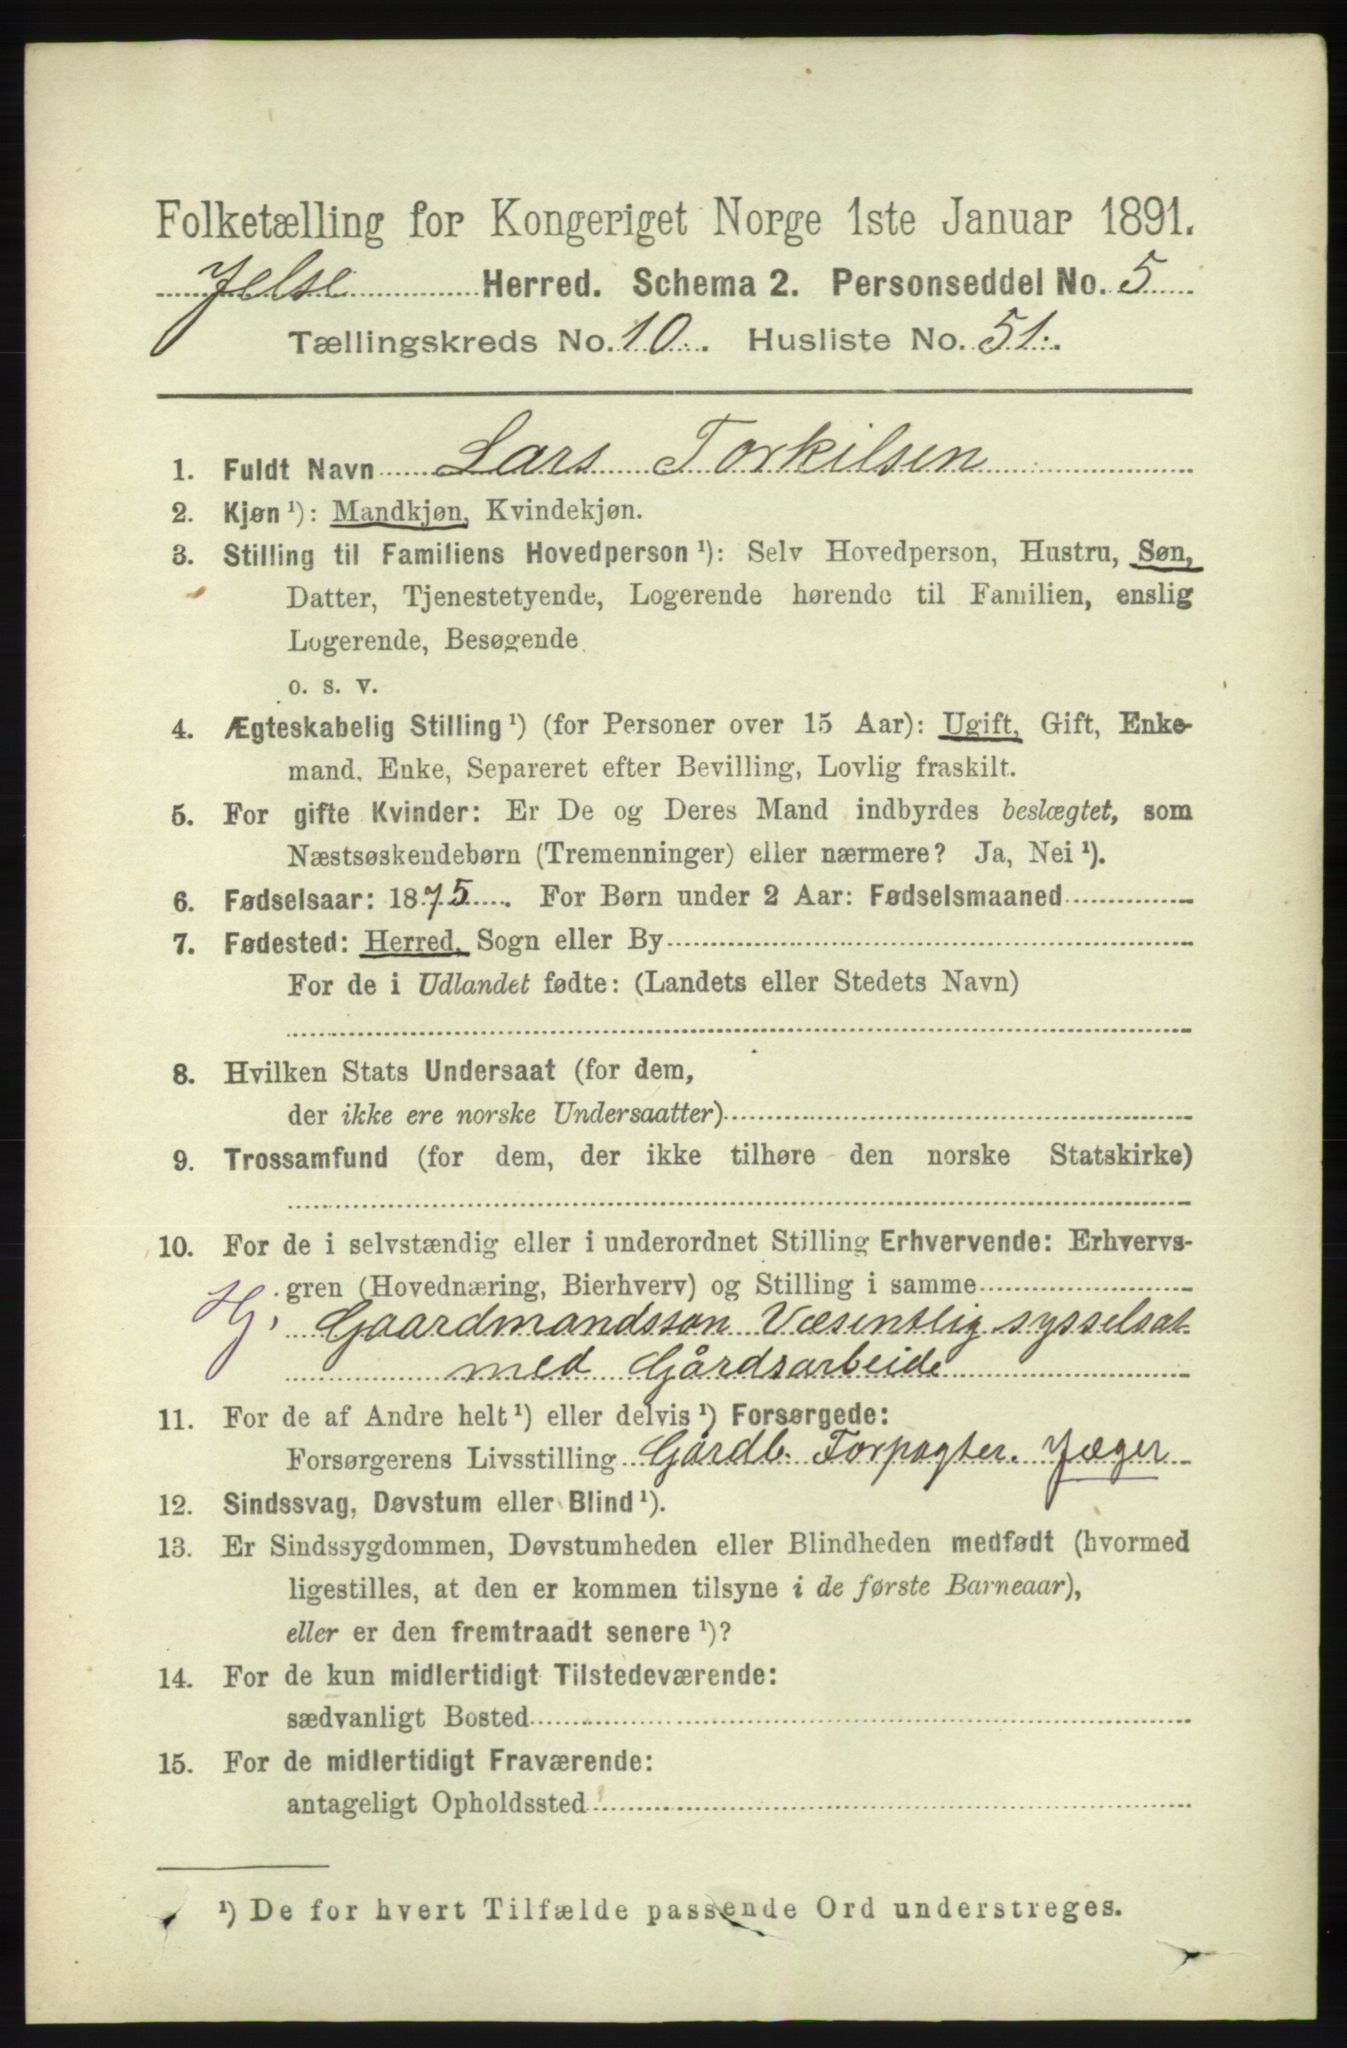 Folketælling for Kongeriget Norge 1ste Januar 1891.
Jelse Herred. Schema 2. Personseddel No. 5
Tællingskreds No. 10. Husliste No. 51.
1. Fuldt Navn Lars Torkilsen
2. Kjøn ¹): Mandkjøn, Kvindekjøn.
3. Stilling til Familiens Hovedperson ¹): Selv Hovedperson, Hustru, Søn,
Datter, Tjenestetyende, Logerende hørende til Familien, enslig
Logerende, Besøgende
o. s. v.
4. Ægteskabelig Stilling ¹) (for Personer over 15 Aar): Ugift, Gift, Enke-
mand, Enke, Separeret efter Bevilling, Lovlig fraskilt.
5. For gifte Kvinder: Er De og Deres Mand indbyrdes beslægtet, som
Næstsøskendebørn (Tremenninger) eller nærmere? Ja, Nei ¹).
6. Fødselsaar: 1875. For Børn under 2 Aar: Fødselsmaaned
7. Fødested: Herred, Sogn eller By
For de i Udlandet fødte: (Landets eller Stedets Navn)
8. Hvilken Stats Undersaat (for dem,
der ikke ere norske Undersaatter)
9. Trossamfund (for dem, der ikke tilhøre den norske Statskirke)
10. For de i selvstændig eller i underordnet Stilling Erhvervende: Erhvervs-
gren (Hovednæring, Bierhverv) og Stilling i samme
Hj. Gaardmandsson Væsentlig sysselsat
med Gårdsarbeide
11. For de af Andre helt ¹) eller delvis ¹) Forsørgede:
Forsørgerens Livsstilling Gårdb. Forpagter. Jæger
12. Sindssvag, Døvstum eller Blind ¹).
13. Er Sindssygdommen, Døvstumheden eller Blindheden medfødt (hvormed
ligestilles, at den er kommen tilsyne i de første Barneaar),
eller er den fremtraadt senere ¹)?
14. For de kun midlertidigt Tilstedeværende:
sædvanligt Bosted
15. For de midlertidigt Fraværende:
antageligt Opholdssted
¹) De for hvert Tilfælde passende Ord understreges.